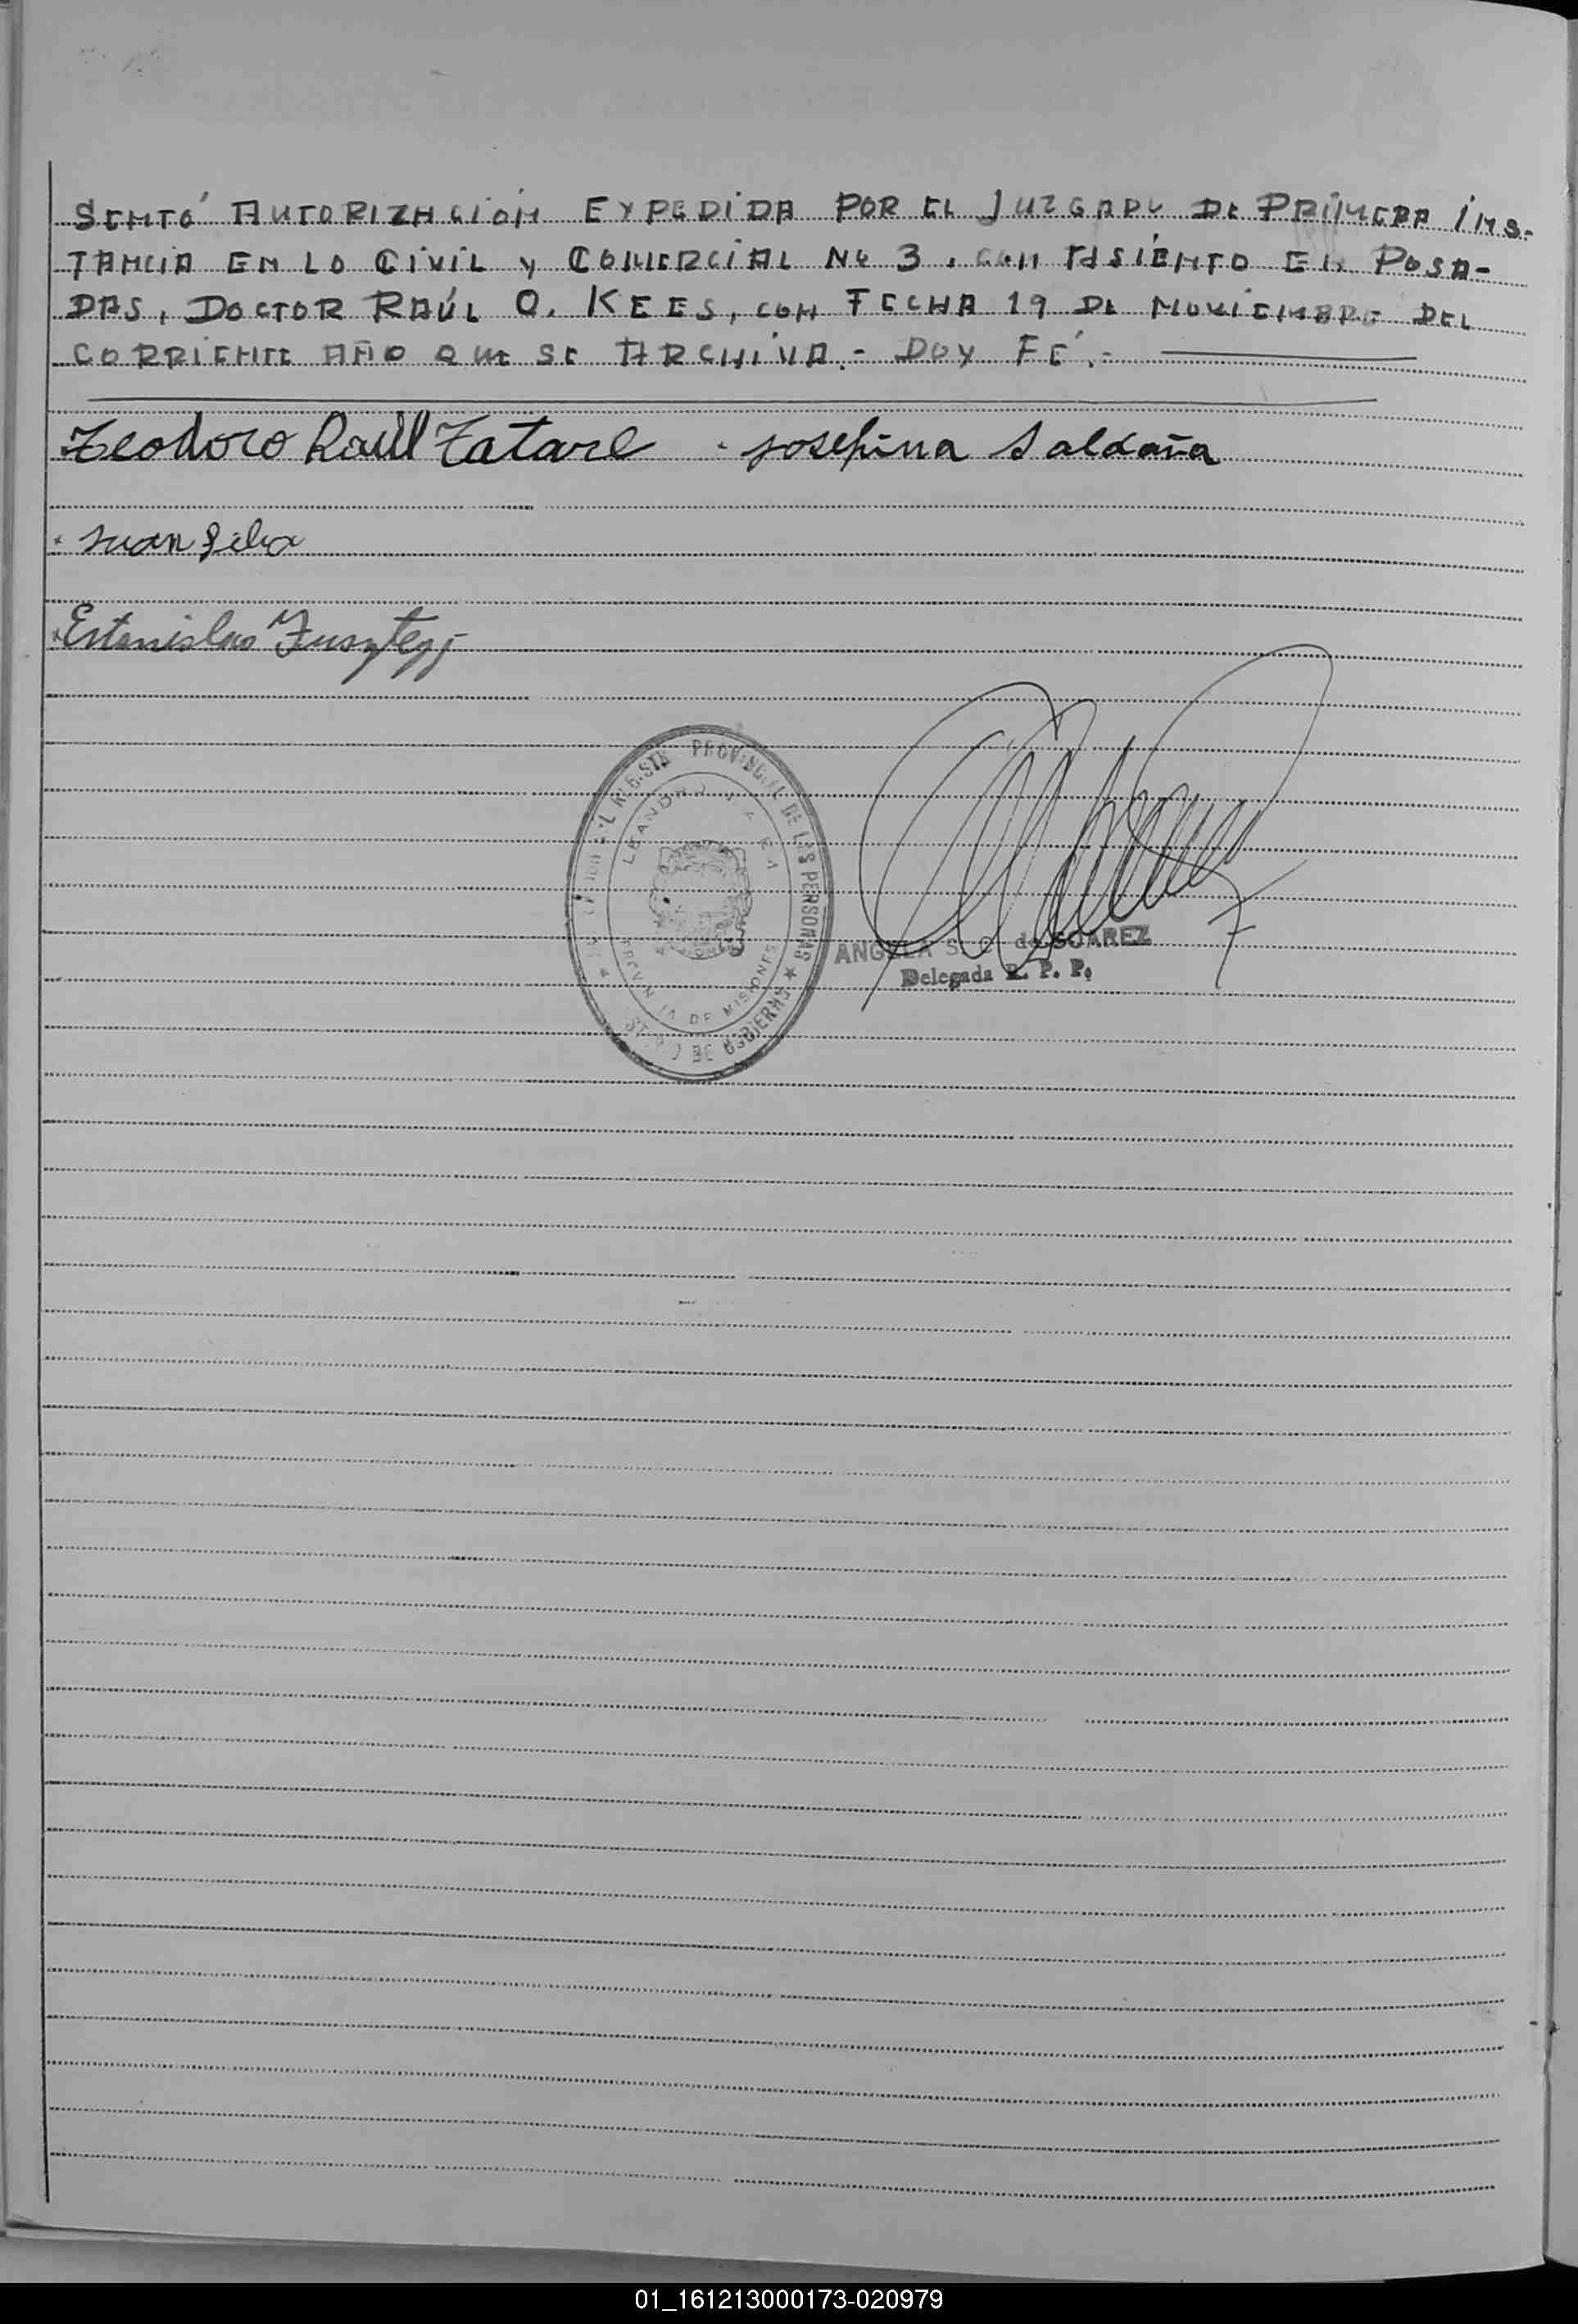 SENTÓ AUTORIZACIÓN EXPEDIDA POR EL JUZGADO DE PRIMERA INS-
TANCIA EN LO CIVIL y COMERCIAL No 3, CON ASIENTO EN POSA-
DAS, DOCTOR RAÚL O. KEES, CON FECHA 19 DE NOVIEMBRE DEL
CORRIENTE AÑO QUE SE ARCHIVA.- DOY FÉ.-
Teodoro Raúl Tatare Josefina Saldaña
Juan
Estanislao
PROVINCIAL DE LAS PERSONAS
DE GOBIERNO
LEANDRO
DE MISIONES
ANGELA S. de SOAREZ
Delegada R. P. P.
01_161213000173-020979